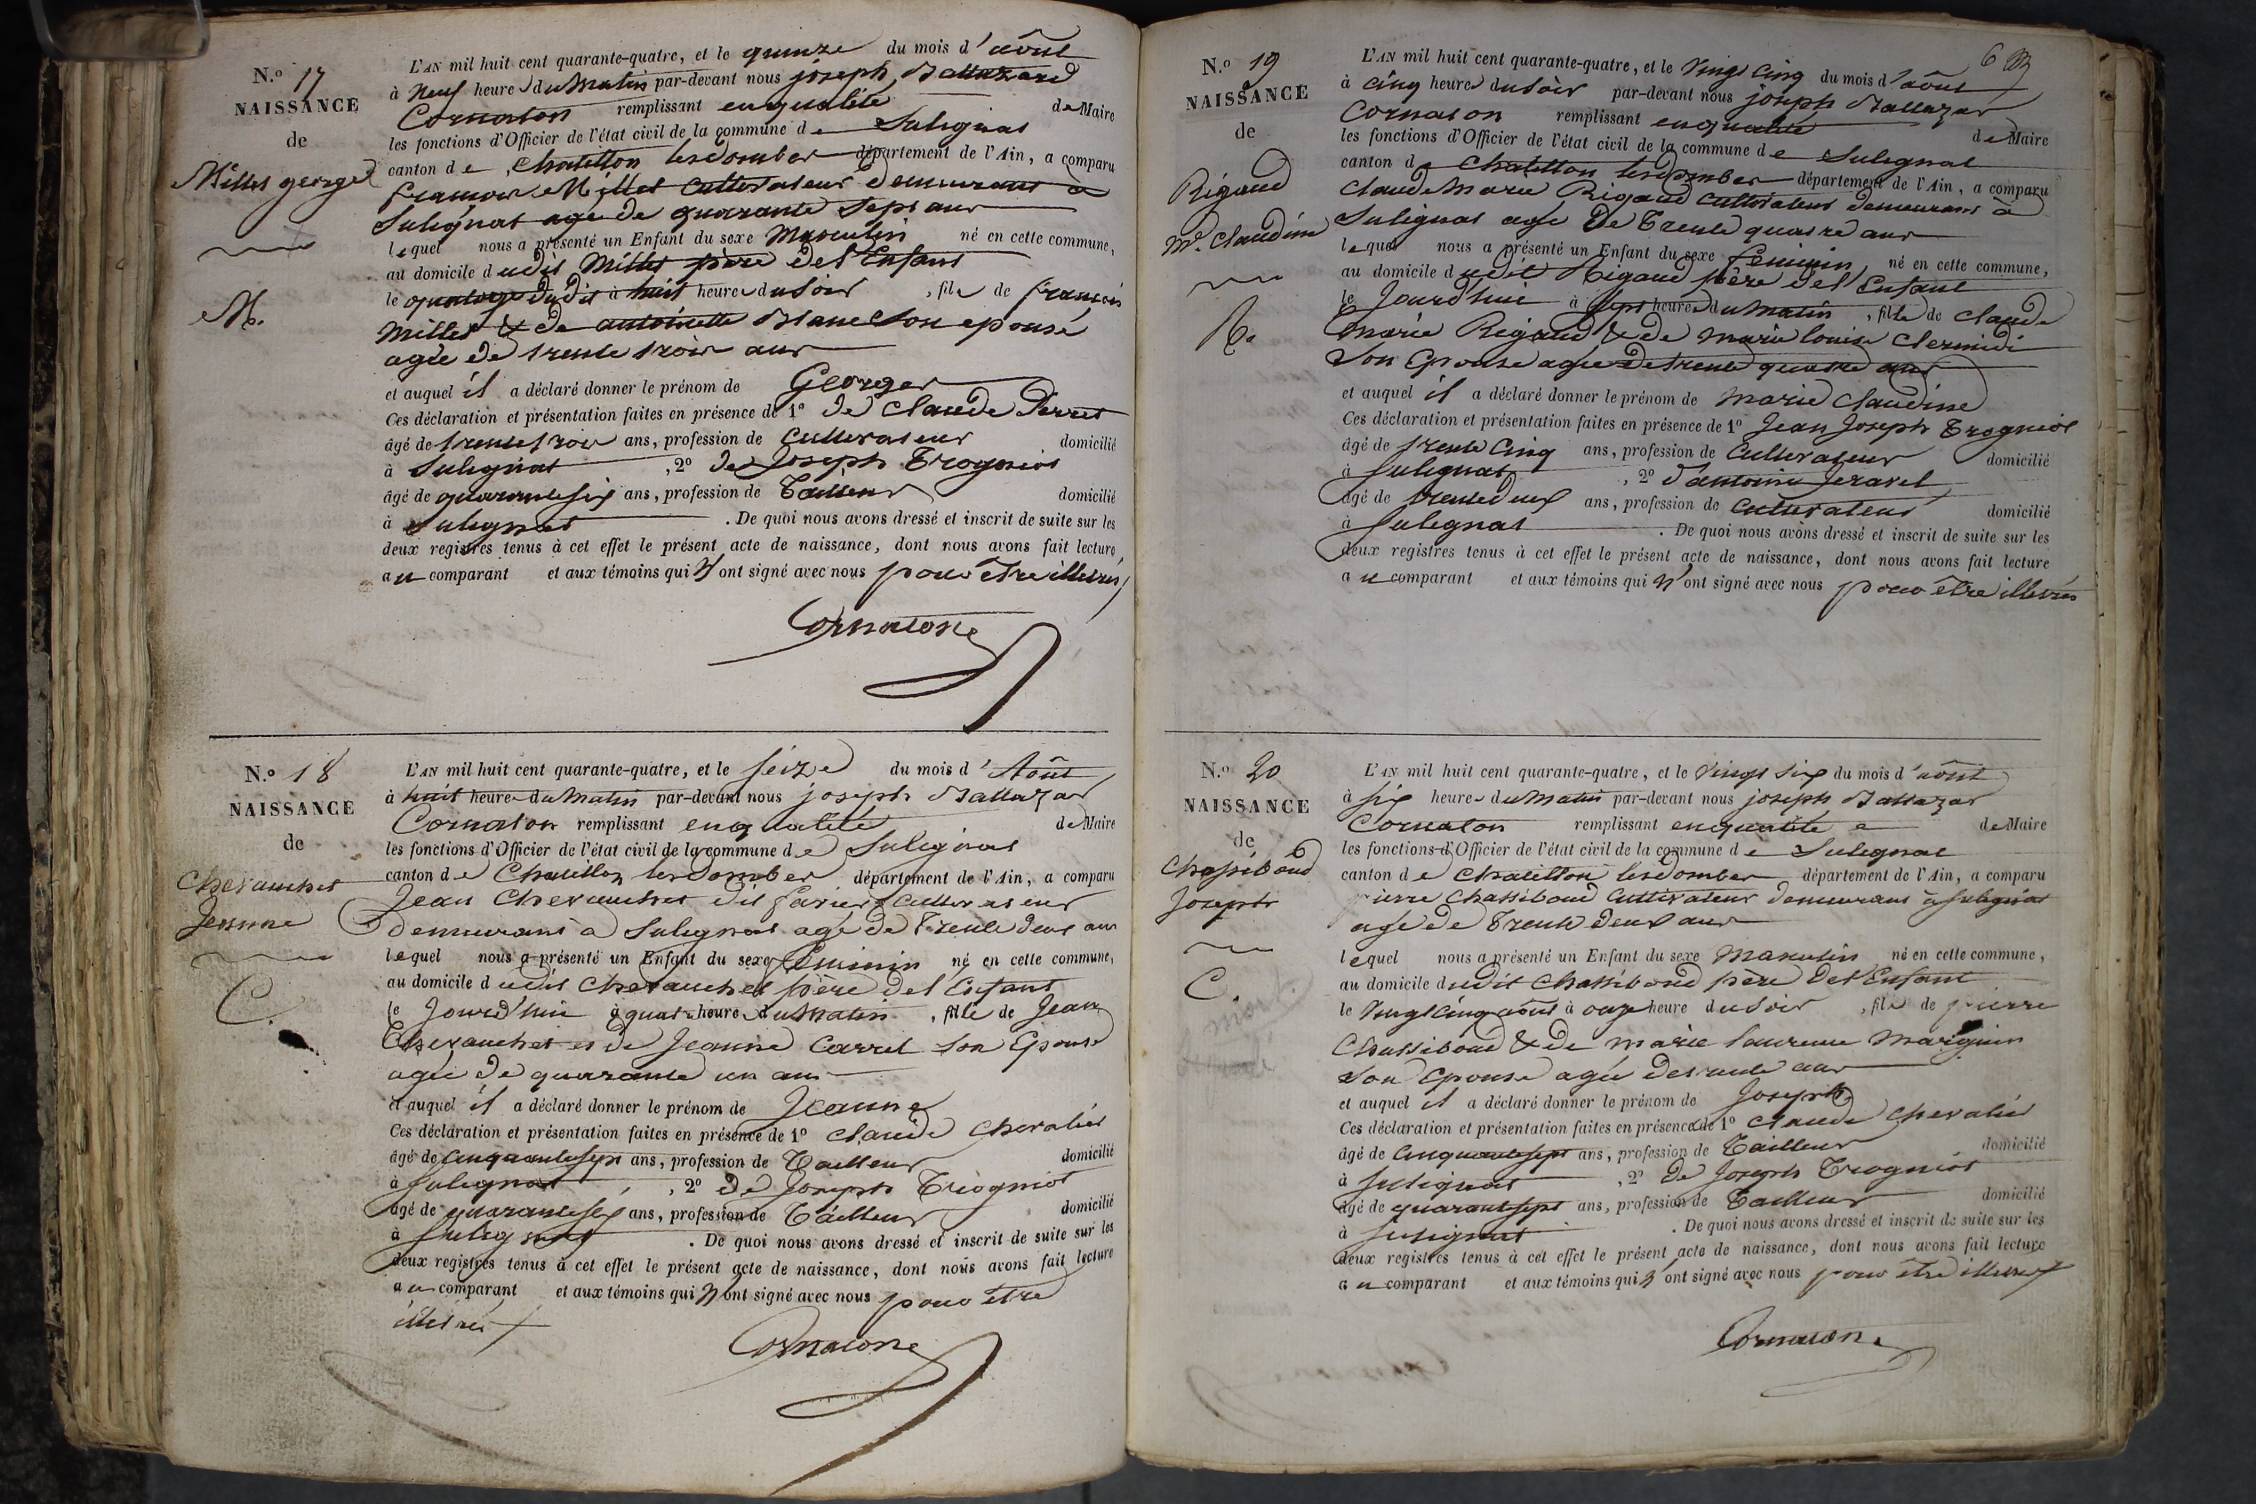 N.o 17
NAISSANCE
de
Millet george
M.
L'AN mil huit cent quarante-quatre, et le quinze du mois d'août
à Neuf heure du Matin par-devant nous joseph Baltazard
Cornaton remplissant en qualité de Maire
les fonctions d'Officier de l'état civil de la commune de Sulignat
canton de Chatillon les dombes département de l'Ain, a comparu
françois Millet cultivateur demeurant à
Sulignat agé de quarante sept ans
lequel nous a présenté un Enfant du sexe Masculin né en cette commune,
au domicile dudit Millet père del Enfant
le quatorze dudit à huit heure du soir , fils de françois
Millet & de antoinette Blanc son epouse
agée de trente trois ans
et auquel il a déclaré donner le prénom de George
Ces déclaration et présentation faites en présence de 1o de claude Perret
âgé de trente trois ans, profession de cultivateur domicilié
à Sulignat , 2o de Joseph Trogniot
âgé de quarante six ans, profession de Tailleur domicilié
à Sulignat . De quoi nous avons dressé et inscrit de suite sur les
deux registres tenus à cet effet le présent acte de naissance, dont nous avons fait lecture
au comparant et aux témoins qui n'ont signé avec nous pour être illetrés
Cornaton
N.o 18
NAISSANCE
de
Chevauchet
Jeanne
C.
L'AN mil huit cent quarante-quatre, et le seize du mois d'Août
à huit heure du Matin par-devant nous joseph Baltazar
Cornaton remplissant en qualité de Maire
les fonctions d'Officier de l'état civil de la commune de Sulignat
canton de Chatillon les dombes département de l'Ain, a comparu
Jean Chevauchet dit farier Cultivateur
demeurant à Sulignat agé de Trente deux ans
lequel nous a présenté un Enfant du sexe feminin né en cette commune,
au domicile dudit Chevauchet père del Enfant
le Jourd'hui à quatre heure du Matin , fille de Jean
Chevauchet et de Jeanne Carrel son Epouse
agée de quarante un ans
et auquel il a déclaré donner le prénom de Jeanne
Ces déclaration et présentation faites en présence de 1o claude Chevalier
âgé de cinquante sept ans, profession de Tailleur domicilié
à Sulignat , 2o de Joseph Trogniot
âgé de quarante six ans, profession de Tailleur domicilié
à Sulignat . De quoi nous avons dressé et inscrit de suite sur les
deux registres tenus à cet effet le présent acte de naissance, dont nous avons fait lecture
au comparant et aux témoins qui n'ont signé avec nous pour être
illetrés
Cornaton
N.o 19
NAISSANCE
de
Rigaud
Me. Claudine
R.
L'AN mil huit cent quarante-quatre, et le Vingt Cinq du mois d'août
à cinq heure du soir par-devant nous joseph Baltazar
Cornaton remplissant en qualité de Maire
les fonctions d'Officier de l'état civil de la commune de Sulignat
canton de Chatillon les dombes département de l'Ain, a comparu
Claude Marie Rigaud cultivateur demeurant à
Sulignat agé De Trente quatre ans
lequel nous a présenté un Enfant du sexe feminin né en cette commune,
au domicile dudit Rigaud père del Enfant
le Jourd'hui à sept heure du Matin , fille de Claude
Marie Rigaud & de Marie louise Clermidi
son Epouse agée de trente quatre ans
et auquel il a déclaré donner le prénom de Marie Claudine
Ces déclaration et présentation faites en présence de 1o Jean Joseph Trogniot
âgé de trente cinq ans, profession de Cultivateur domicilié
à Sulignat , 2o d'antoine
âgé de trente deux ans, profession de Cultivateur domicilié
à Sulignat . De quoi nous avons dressé et inscrit de suite sur les
deux registres tenus à cet effet le présent acte de naissance, dont nous avons fait lecture
au comparant et aux témoins qui n'ont signé avec nous pour être illetrés
N.o 20
NAISSANCE
de
Chassiboud
Joseph
C.
L'AN mil huit cent quarante-quatre, et le Vingt six du mois d'août
à six heure du Matin par-devant nous joseph Baltazar
Cornaton remplissant en qualité de Maire
les fonctions d'Officier de l'état civil de la commune de Sulignat
canton de Chatillon les dombes département de l'Ain, a comparu
pierre Chassiboud Cultivateur demeurant à Sulignat
agé de Trente Deux ans
lequel nous a présenté un Enfant du sexe Masculin né en cette commune,
au domicile dudit Chassiboud père Del Enfant
le Vingt cinq août à onze heure du soir , fils de pierre
Chassiboud & de marie laurence Marguin
son Epouse agée de trente ans
et auquel il a déclaré donner le prénom de Joseph
Ces déclaration et présentation faites en présence de 1o claude Chevalier
âgé de cinquante sept ans, profession de Tailleur domicilié
à Sulignat , 2o de Joseph Trogniot
âgé de quarante sept ans, profession de Tailleur domicilié
à Sulignat . De quoi nous avons dressé et inscrit de suite sur les
deux registres tenus à cet effet le présent acte de naissance, dont nous avons fait lecture
au comparant et aux témoins qui n'ont signé avec nous pour être illetrés
Cornaton